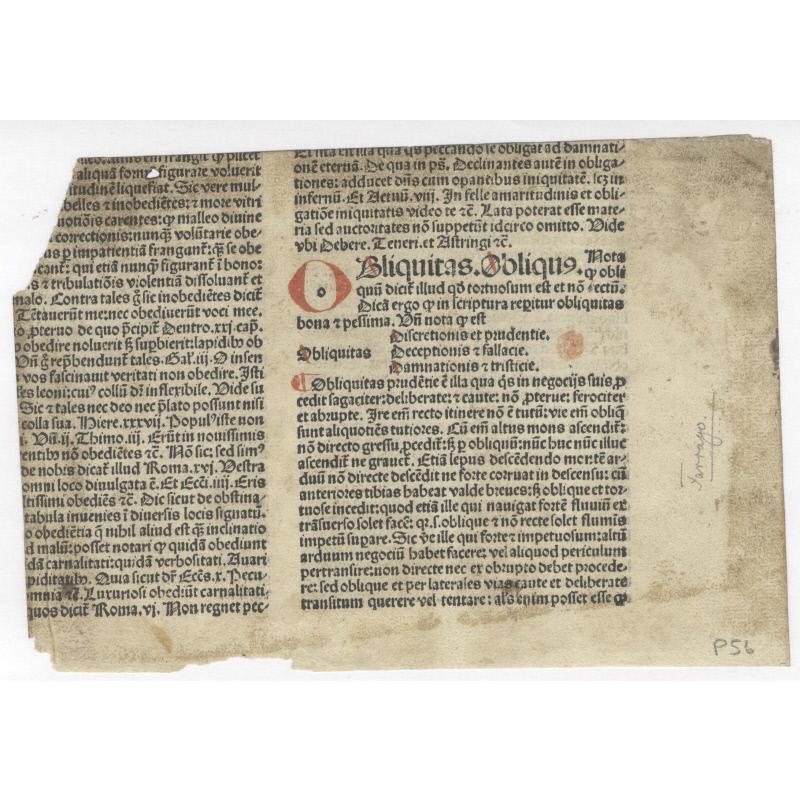 aliquā formā figurare voluerit
itudinē liquefiat. Sic vere mul-
belles ⁊ inobediētes: ⁊ more vitri
uotiōis carentes: qꝫ malleo diuine
correctionis: nunq̄ volūtarie obe-
us per impatientiā frangunt: q̄ se obe
cant: qui etiā nunq̄ figurant i honor:
s ⁊ tribulatiōis violentiā dissoluant et
malo. Contra tales ḡ sic inobediētes dicit
Tētauerūt me: nec obedierūt voci mee.
o pteruo de quo p̄cipit Deutro. xxj. cap.
obedire noluerit ⁊ supbierit: lapidib ob
Vn̄ ḡ rep̄hendunt tales. Gal. iij. O insen
vos fascinauit veritati non obedire. Isti
es leoni: cui collū dn̄ inflexibile. Vide su
Sic ⁊ tales nec deo nec p̄lato possunt nisi
colla sua. Hiere. xxxvij. Popliste non
i. Vn̄. ij. Thimo. iij. Erūt in nouissimis
entibꝰ nō obediētes ⁊c̄. Nō sic: sed sim
de nobis dicat illud Roma. xvj. Vestra
omni loco diuulgata ē. Et Ecci. iiij. Eris
tissimi obediēs ⁊c̄. Dic sicut de obstina
tabula inuenies ī diuersis locis signatū.
o obediētia q̄ nihil aliud est q̄ inclinatio
d malū: posset notari qꝫ quidā obediunt
dā carnalitati: quidā verbositati. Auari
piditatibꝰ. Quia sicut dr̄ Ecc̄s. x. Pecu
omnia ⁊c̄. Luxuriosi obediūt carnalitati
quos dicit Roma. vj. Non regnet pec-
Et ista est illa qua q̄s peccando se obligat ad damnati-
onē eternā. De qua in ps̄. Declinantes autē in obliga-
tiones: adducet dn̄s cum opantibus iniquitatē. lez in
infernū. Et Actuū. viij. In felle amaritudinis et obli-
gatiōe iniquitatis video te ⁊c̄. Lata poterat esse mate-
ria sed auctoritates nō suppetūt idcirco omitto. Vide
vbi Debere. Teneri. et Astringi ⁊c̄.
OBliquitas. Obliquꝰ. Nota
qꝫ obli
quū dicit illud qd̄ tortuosum est et nō rectū.
Dicā ergo qꝫ in scriptura reperitur obliquitas
bona ⁊ pessima. Vn̄ nota qꝫ est
Discretionis et prudentie.
Obliquitas Deceptionis ⁊ fallacie.
Damnationis ⁊ tristicie.
¶ Obliquitas prudētie ē illa qua q̄s in negocijs suis, p
cedit sagaciter: deliberate: ⁊ caute: nō pterue: ferociter
et abrupte. Ire em̄ recto itinere nō ē tutū: vie em̄ obliq̄
sunt aliquotiēs tutiores. Cū em̄ altus mons ascendit:
nō directo gressu, pcedit: sꝫ p obliquū: nūc huc nūc illuc
ascendit ne grauet. Etiā lepus descēdendo montē ar-
duū nō directe descēdit ne forte corruat in descensu: cū
anteriores tibias habeat valde breues: sꝫ oblique et tor-
tuose incedit: quod etiā ille qui nauigat fortē fluuiū ex
trāsuerso solet facē: qr. s. oblique ⁊ nō recte solet fluuis
impetū supare. Sic v̄e ille qui forte ⁊ impetuosum: altū
arduum negociū habet facere: vel aliquod periculum
pertransire: non directe nec ex abrupto debet procede-
re: sed oblique et per laterales vias caute et deliberate
transitum querere vel tentare: als̄ enim posset esse qꝫ
Tarrago.
P56